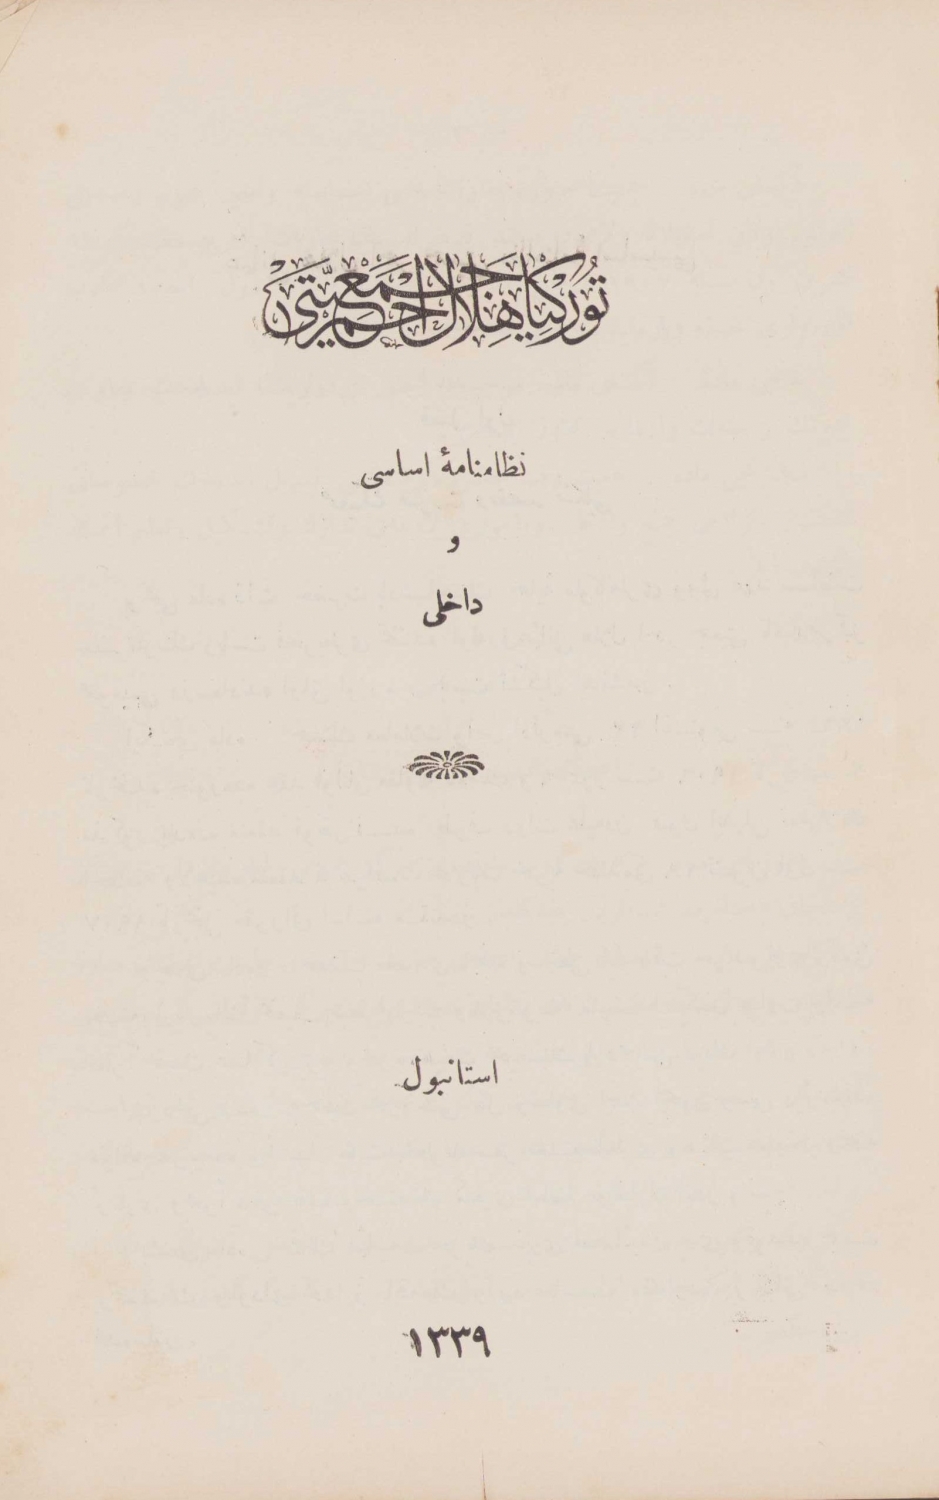 توركيا هلال احمر جمعيتى
نظامنامۀ اساسى
و
داخلى
استانبول
١٣٣٩